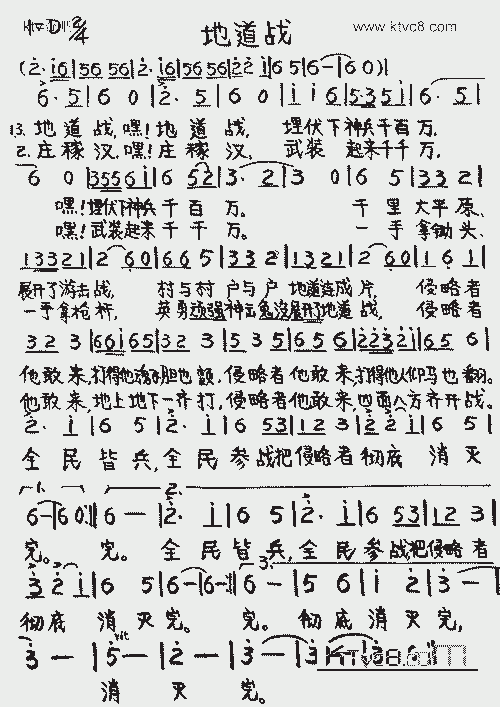 1=D 2/4
地道战
www.ktvc8.com
(2· i6|56 56|2· i6|56 56|22 i|65|6—|60)|
6· 5|6 0|2· 5|6 0|i i 6|535 i|6· 5|
1.3. 地道战,嘿!地道战, 埋伏下神兵千百万,
2. 庄稼汉,嘿!庄稼汉, 武装起来千千万,
6 0|3556i|6 52|3· 2|3 0|6 5|332|
嘿!埋伏下神兵千百万。 千里大平原、
嘿!武装起来千千万。 一手拿锄头、
13321|2 60|665|352|332|1321|260|616|
展开了游击战, 村与村户与户地道连成片, 侵略者
一手拿枪杆, 英勇顽强神出鬼没展开了地道战, 侵略者
323|66i65|323|535|656|2232i|656|
他敢来,打得他魂飞胆也颤,侵略者他敢来,打得他人仰马也翻。
他敢来,地上地下一齐打,侵略者他敢来,四面八方齐开战。
2· i|6 5|2· i|6 53|123|22i|6 5|
全民皆兵,全民参战把侵略者彻底消灭
1. 2.
6—|60:‖6—|2· i|6 5|2· i|6 53|123|
完。 完。 全民皆兵,全民参战,把侵略者
3.
32i|6 5|6—|6—:‖6—|5 6|i 2|3—|
彻底消灭完。 完。 彻底消灭完,
rit
3—|5—|2—|3—|3—|
消灭完。